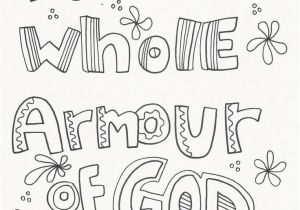 whole
Armour
of God